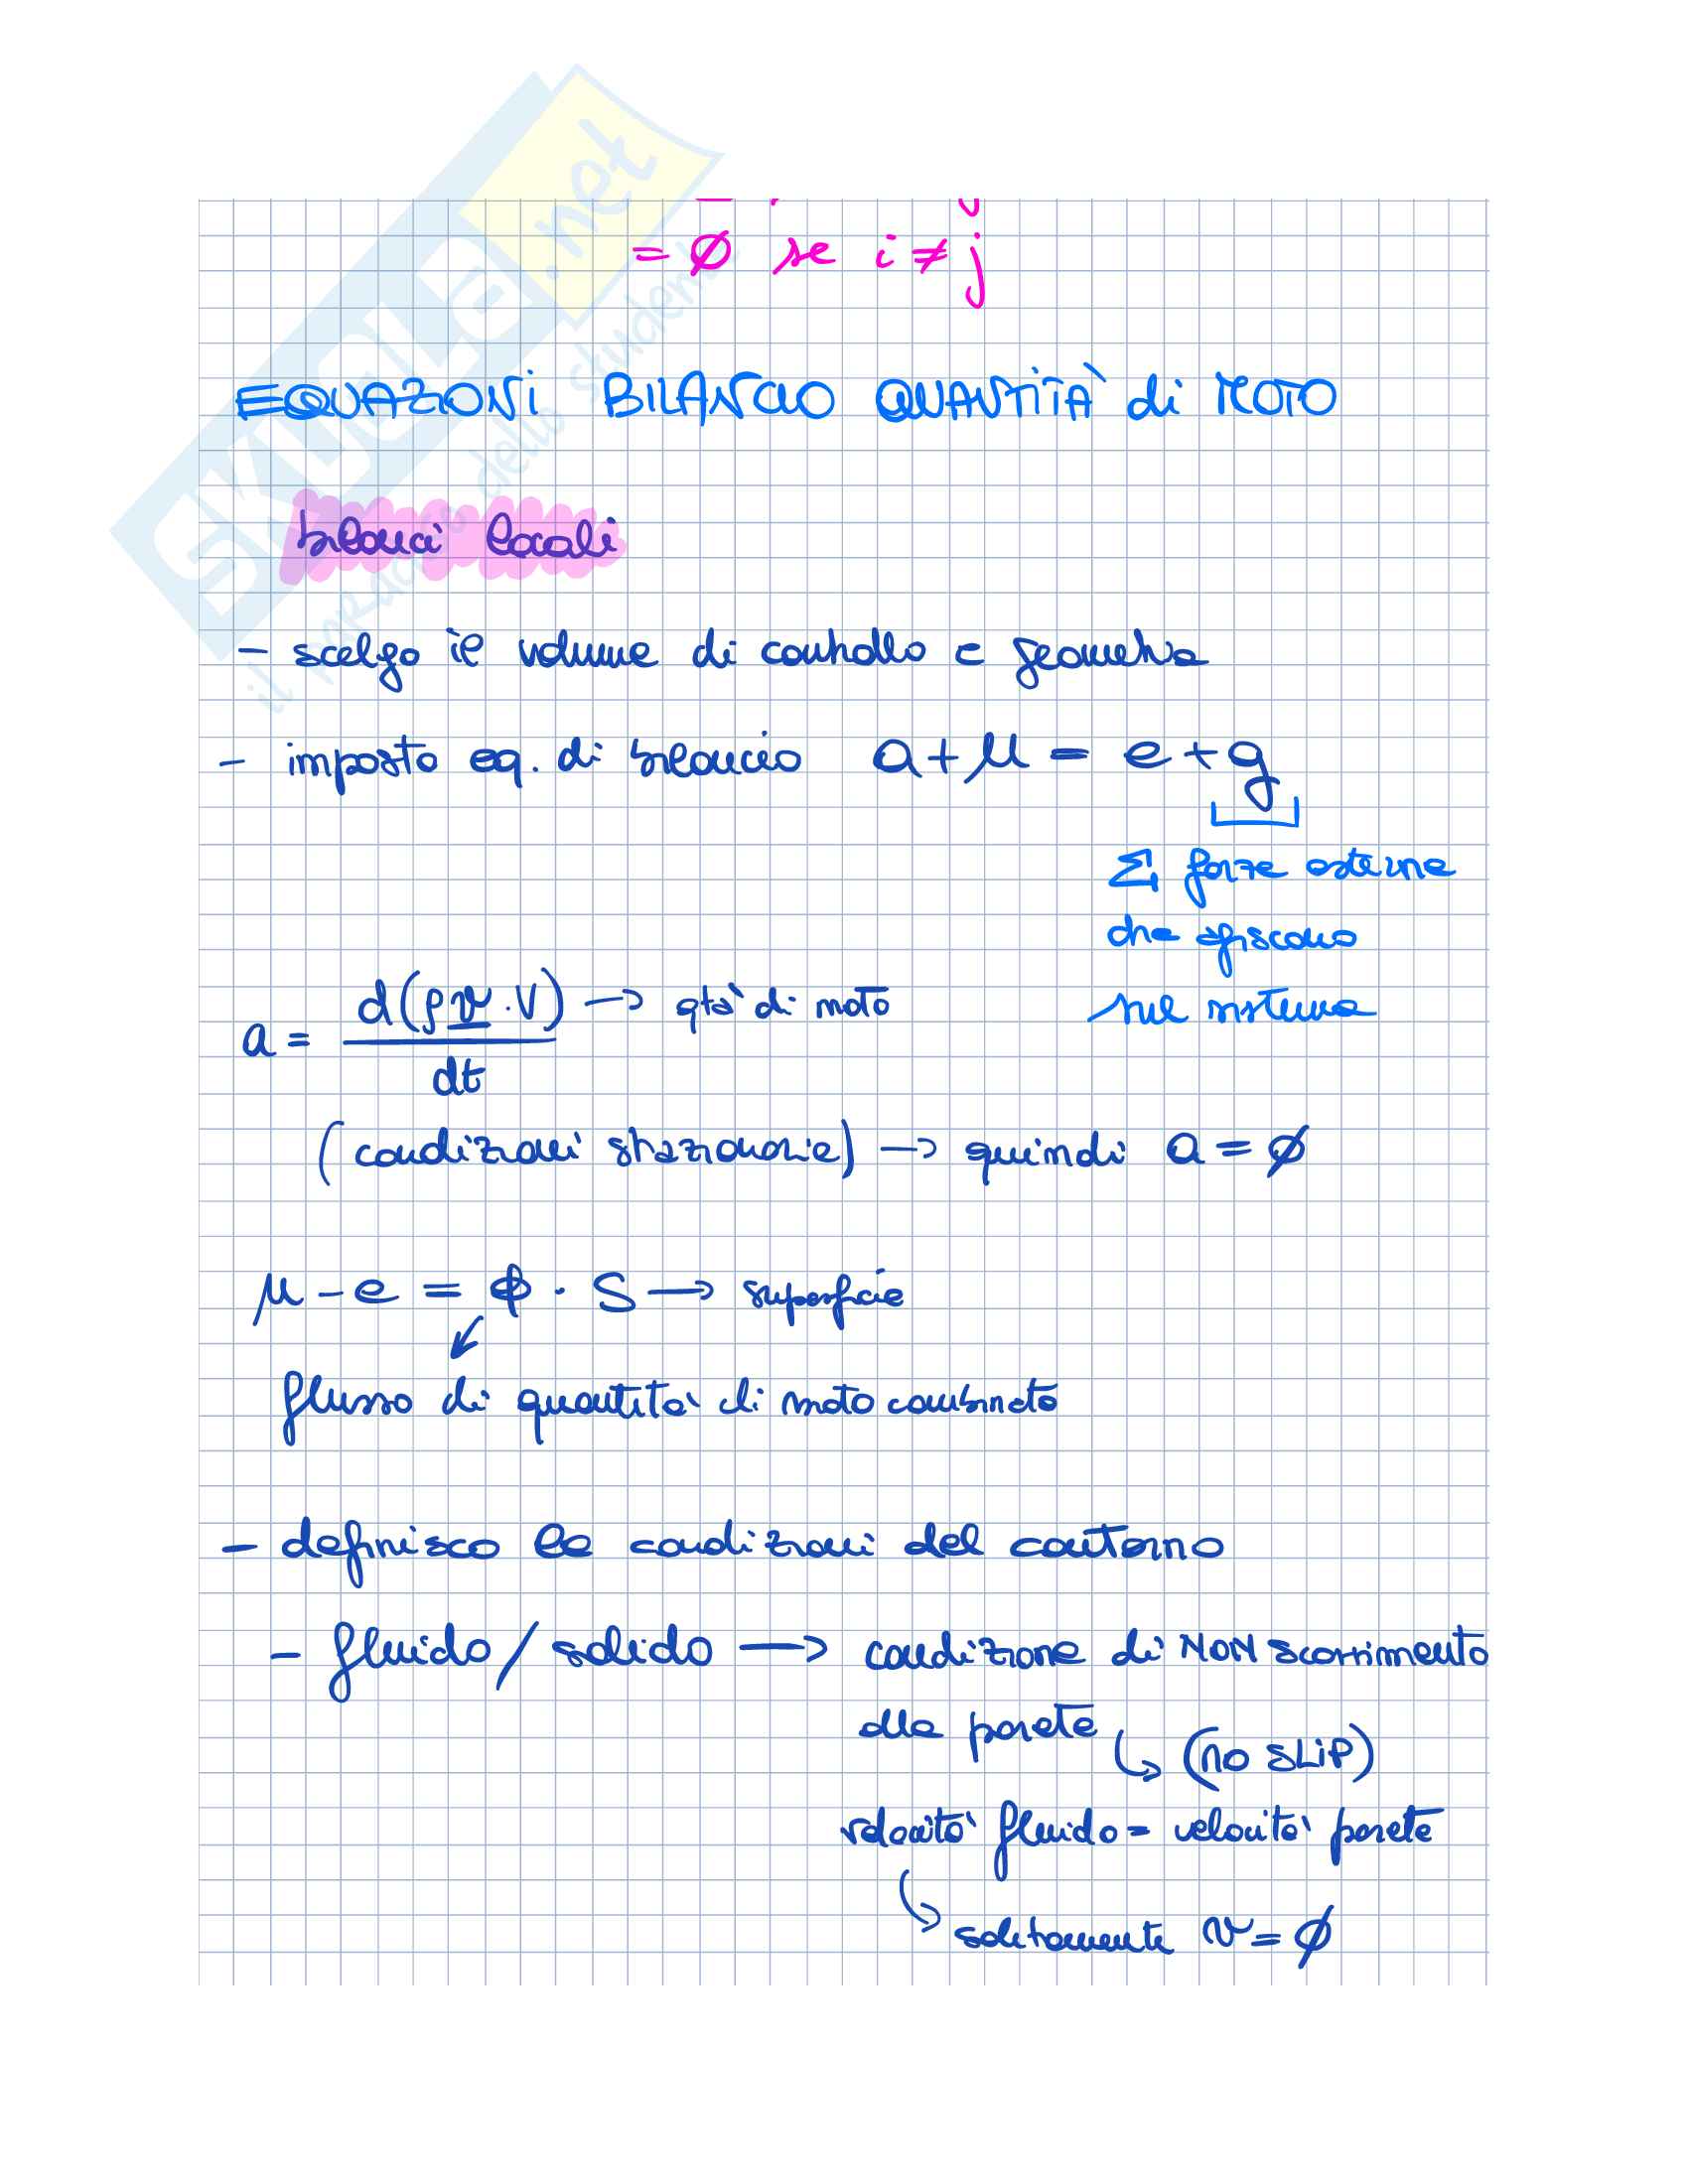 = ∅ se i ≠ j
EQUAZIONI BILANCIO QUANTITÀ di MOTO
bilanci locali
- scelgo il volume di controllo e geometria
- imposto eq. di bilancio a + u = e + g
Σ forze esterne
che agiscono
sul sistema
a = d(ρ v · V) → qtà di moto
dt
(condizioni stazionarie) → quindi a = ∅
u - e = ϕ · S → superficie
flusso di quantità di moto combinato
- definisco le condizioni del contorno
- fluido / solido → condizione di NON scorrimento
alla parete ↳ (no SLiP)
velocità fluido = velocità parete
↳ solitamente v = ∅
SKUOLA.net
il paradiso dello studente